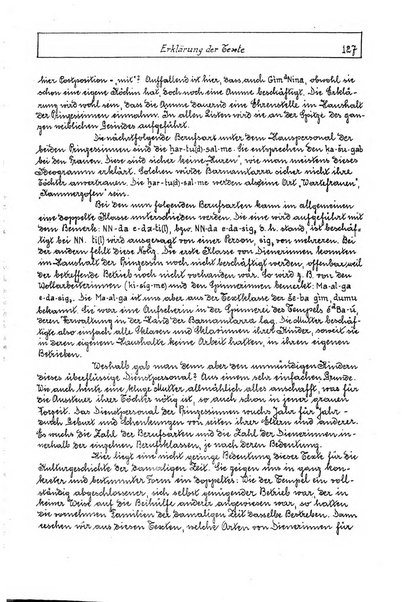 Erklärung der Texte 127
hier Postposition = „mit“? Auffallend ist hier, dass auch Gim-ᵈNina, obwohl sie
schon eine eigene Köchin hat, doch noch eine Amme beschäftigt. Die Erklä-
rung wird wohl sein, dass die Amme dauernd eine Ehrenstelle im Haushalt
der Prinzessinen einnahm. In allen Listen wird sie an der Spitze des gan-
zen weiblichen Gesindes aufgeführt.
Die nächstfolgende Berufsart unter dem Hauspersonal der
beiden Prinzessinen sind die har-tu(d)-sal-me. Sie entsprechen den ka-šu-gab
bei den Frauen. Diese sind sicher keine „Huren“, wie man meistens dieses
Ideogramm erklärt. Solchen würde Barnamtarra sicher nicht ihre
Töchter anvertrauen. Die har-tu(d)-sal-me werden also eine Art „Wartefrauen“,
„Kammerzofen“ sein.
Bei den nun folgenden Berufsarten kann im allgemeinen
eine doppelte Klasse unterschieden werden. Die eine wird aufgeführt mit
dem Bemerk: NN-da e-da-ti(l), bzw. NN-da e-da-sig, d. h. stand, ist beschäf-
tigt bei NN. ti(l) wird ausgesagt von einer Person, sig, von mehreren. Bei
der andern fehlt diese Notiz. Die erste Klasse von Dienerinnen konnten
im Haushalt der Prinzessin noch nicht beschäftigt werden, offenbar weil
der betreffende Betrieb noch nicht vorhanden war. So wird z. B. von den
Wollarbeiterinnen (ki-sig-me) und den Spinnerinnen bemerkt: Ma-al-ga
e-da-sig. Die Ma-al-ga ist uns aber aus der Textklasse der še-ba gim, dumu
bekannt. Sie war eine Aufseherin in der Spinnerei des Tempels ᵈBa-ú,
deren Verwaltung in der Hand der Barnamtarra lag. Die Mutter beschäf-
tigte also einfach alle Sklaven und Sklavinnen ihrer Kinder, soweit sie
in deren eigenem Haushalte keine Arbeit hatten, in ihren eigenen
Betrieben.
Weshalb gab man denn aber den unmündigen Kindern
dieses überflüssige Dienstpersonal? Aus einem sehr einfachen Grunde.
Wie auch heute eine kluge Mutter allmählich alles anschafft, was für
die Aussteuer ihrer Töchter nötig ist, so auch schon in jener grauen
Vorzeit. Das Dienstpersonal der Prinzessinen wuchs Jahr für Jahr
durch Geburt und Schenkungen von seiten ihrer Eltern und anderer.
Es wuchs die Zahl der Berufsarten und die Zahl der Dienerinnen in-
nerhalb der einzelnen Berufsklassen, je nach deren Bedeutung.
Hier liegt eine nicht geringe Bedeutung dieser Texte für die
Kulturgeschichte der damaligen Zeit. Sie zeigen uns in ganz kon-
kreter und bestimmter Form ein doppeltes: Wie der Tempel ein voll-
ständig abgeschlossener, sich selbst genügender Betrieb war, der in
keiner Weise auf die Beihülfe anderer angewiesen war, so hatten
die vornehmen Familien der damaligen Zeit dasselbe Bestreben. Dann
ersehen wir aus diesen Texten, welche Arten von Dienerinnen für